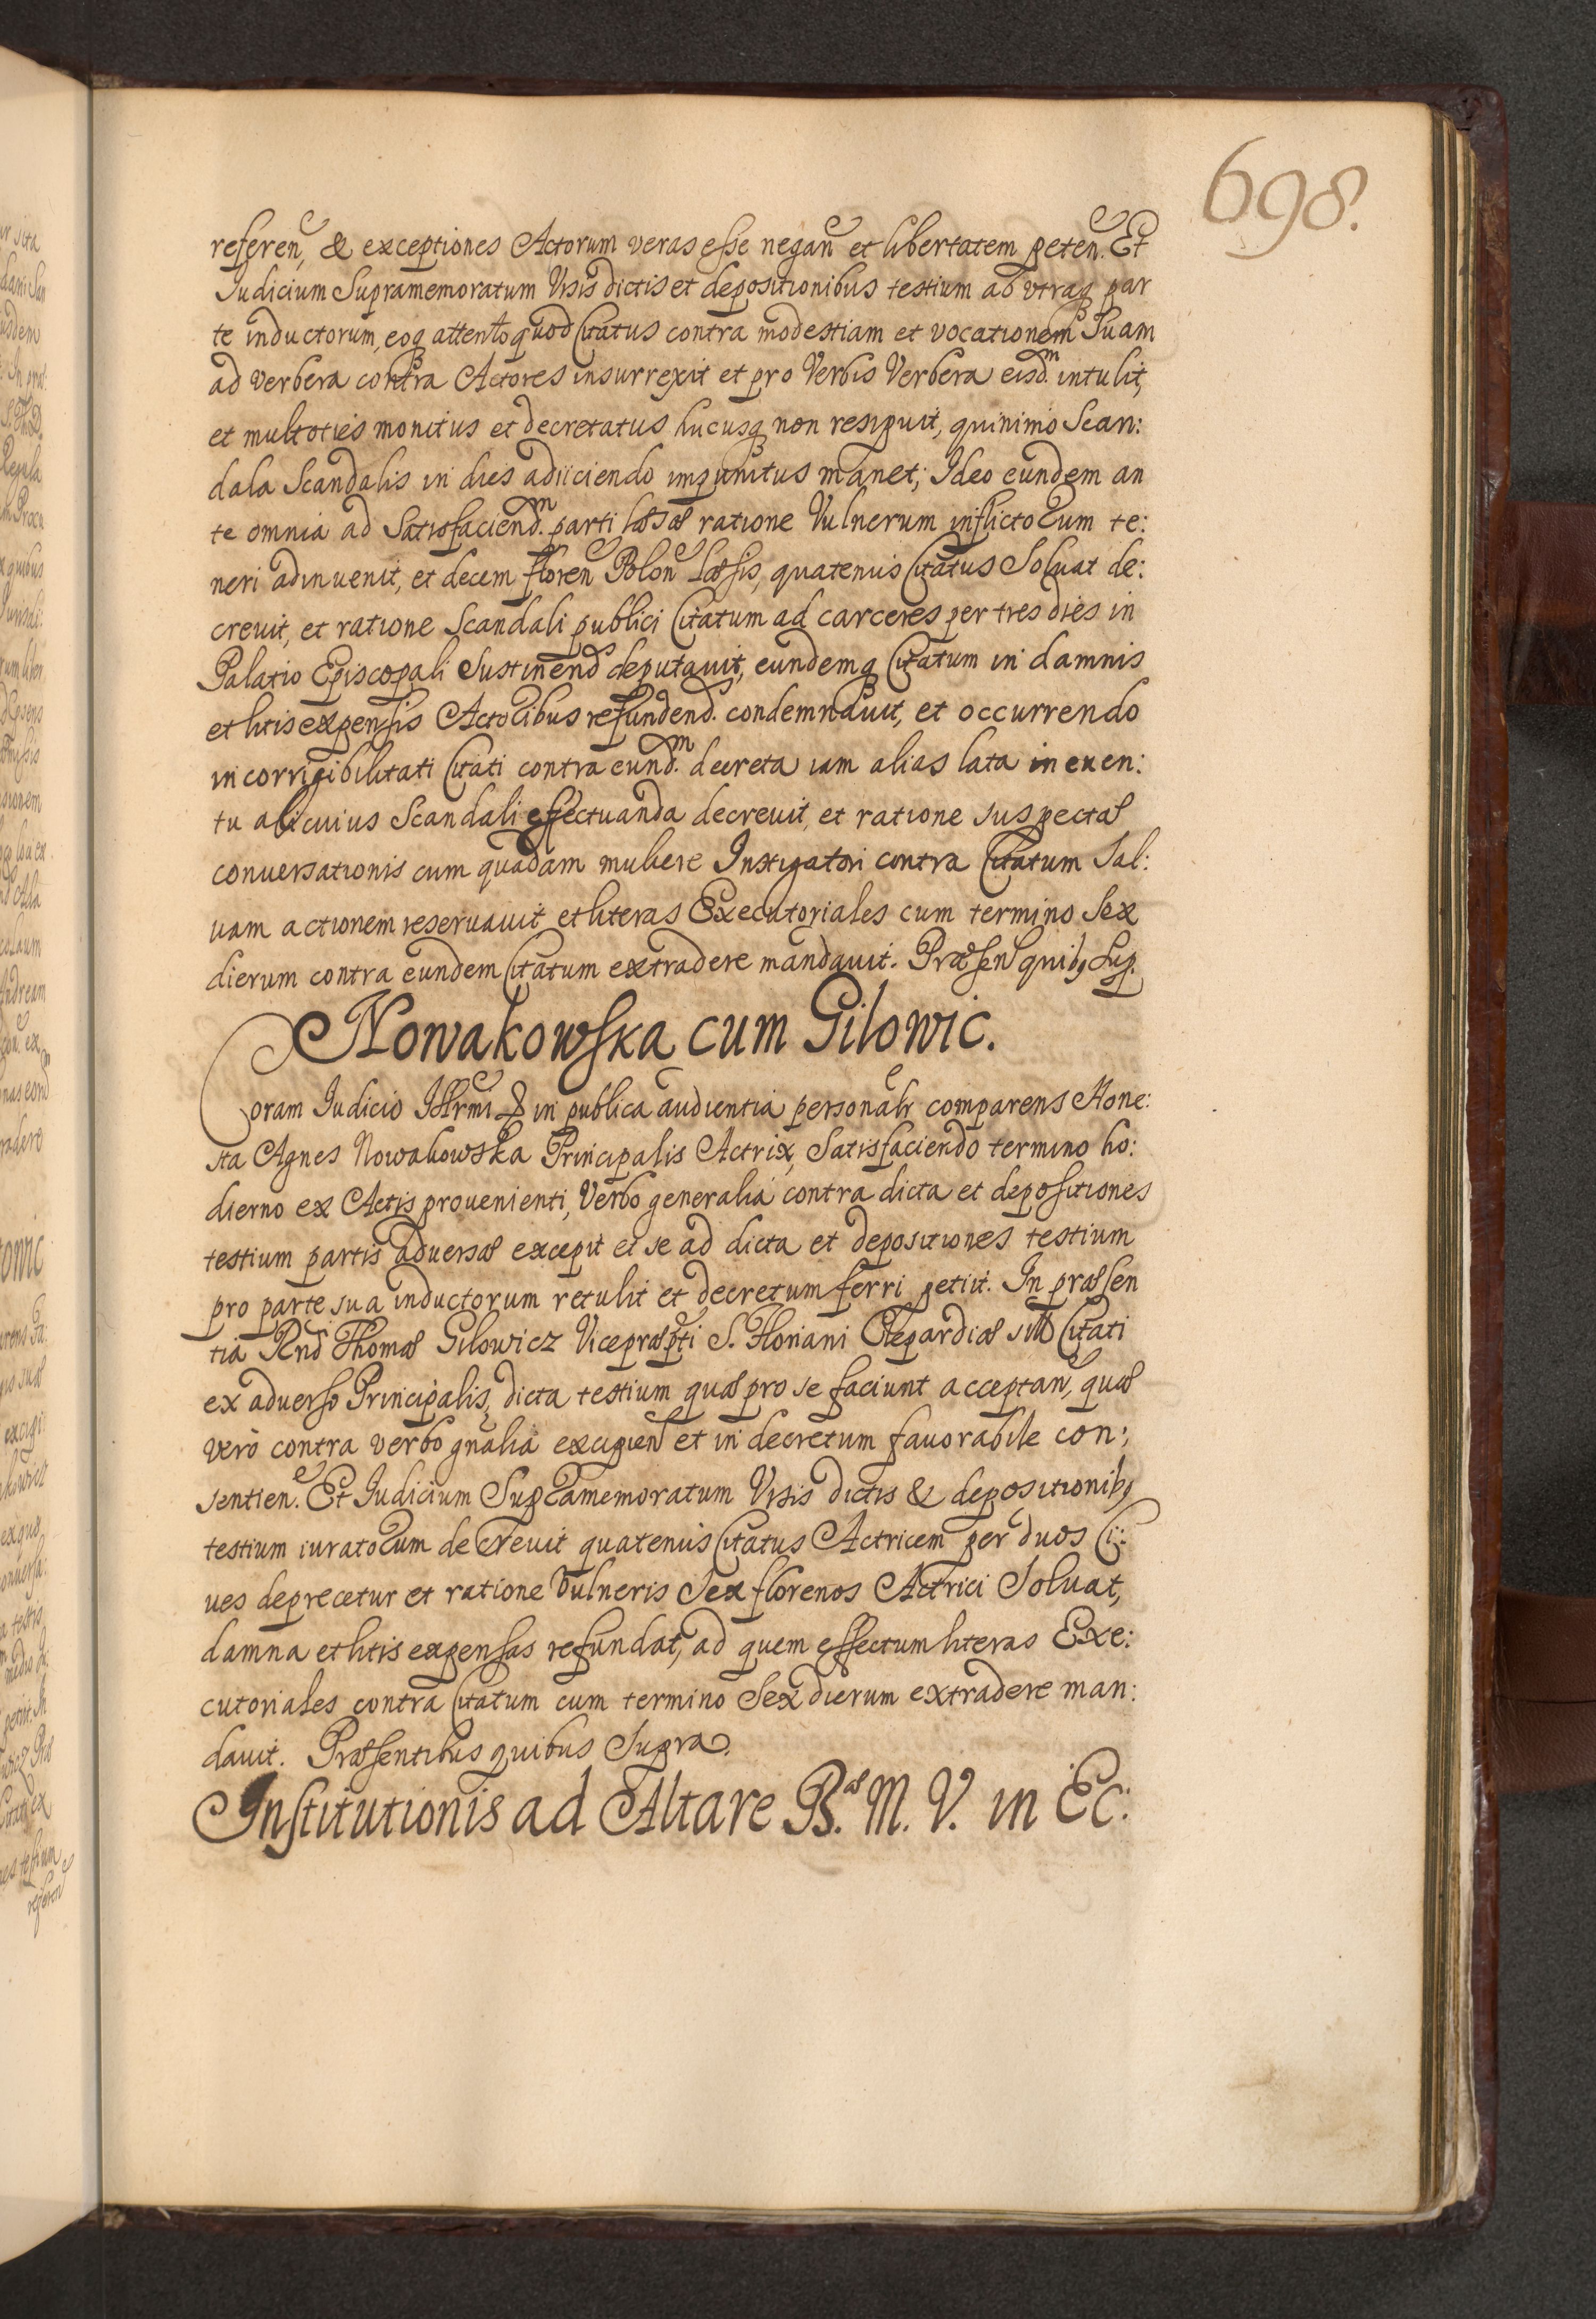 698.
referen, & exceptiones Actorum veras esse negan et libertatem peten. Et
Iudicium Supramemoratum Visis dictis et depositionibus testium ab vtraq par
te inductorum, eoq attento quod Citatus contra modestiam et vocationem Suam
ad verbera contra Actores insurrexit et pro Verbis Verbera eisd.m intulit,
et multoties monitus et decretatus hucusq non resipuit, quinimo Scan:
dala Scandalis in dies adiiciendo impunitus manet; Ideo eundem an
te omnia ad Satisfaciend.m parti læsæ ratione Vulnerum inflictorum te:
neri adinuenit, et decem floren Polon Læsis, quatenus Citatus Soluat de:
creuit, et ratione Scandali publici Citatum ad carceres per tres dies in
Palatio Episcopali Sustinend deputauit, eundemq Citatum in damnis
et litis expensis Actoribus refundend. condemnauit, et occurrendo
incorrigibilitati Citati contra eund.m decreta iam alias lata in euen:
tu alicuius Scandali effectuanda decreuit, et ratione suspectæ
conuersationis cum quadam muliere Instigatori contra Citatum Sal:
uam actionem reseruauit et literas Executoriales cum termino Sex
dierum contra eundem Citatum extradere mandauit. Præsen quib, Sup.
Nowakowska cum Gilowic.
Coram Iudicio Illrmi & in publica audientia personalr comparens Hone:
sta Agnes Nowakowska Principalis Actrix, Satisfaciendo termino ho:
dierno ex Actis prouenienti, Verbo generalia contra dicta et depositiones
testium partis aduersæ excepit et se ad dicta et depositiones testium
pro parte sua inductorum retulit et decretum ferri petiit. In præsen
tia Rnd Thomæ Gilowicz Vicepræpti S. Floriani Clepardiæ siti Citati
ex aduerso Principalis, dicta testium quæ pro se faciunt acceptan, quæ
verò contra verbo gnalia excipien et in decretum fauorabile con:
sentien. Et Iudicium Supramemoratum Visis dictis & depositionib,
testium iuratorum decreuit quatenus Citatus Actricem per duos Ci:
ues deprecetur et ratione Vulneris Sex florenos Actrici Soluat,
damna et litis expensas refundat, ad quem effectum literas Exe:
cutoriales contra Citatum cum termino Sex dierum extradere man:
dauit. Præsentibus quibus Supra.
Institutionis ad Altare B.æ M. V. in Ec: